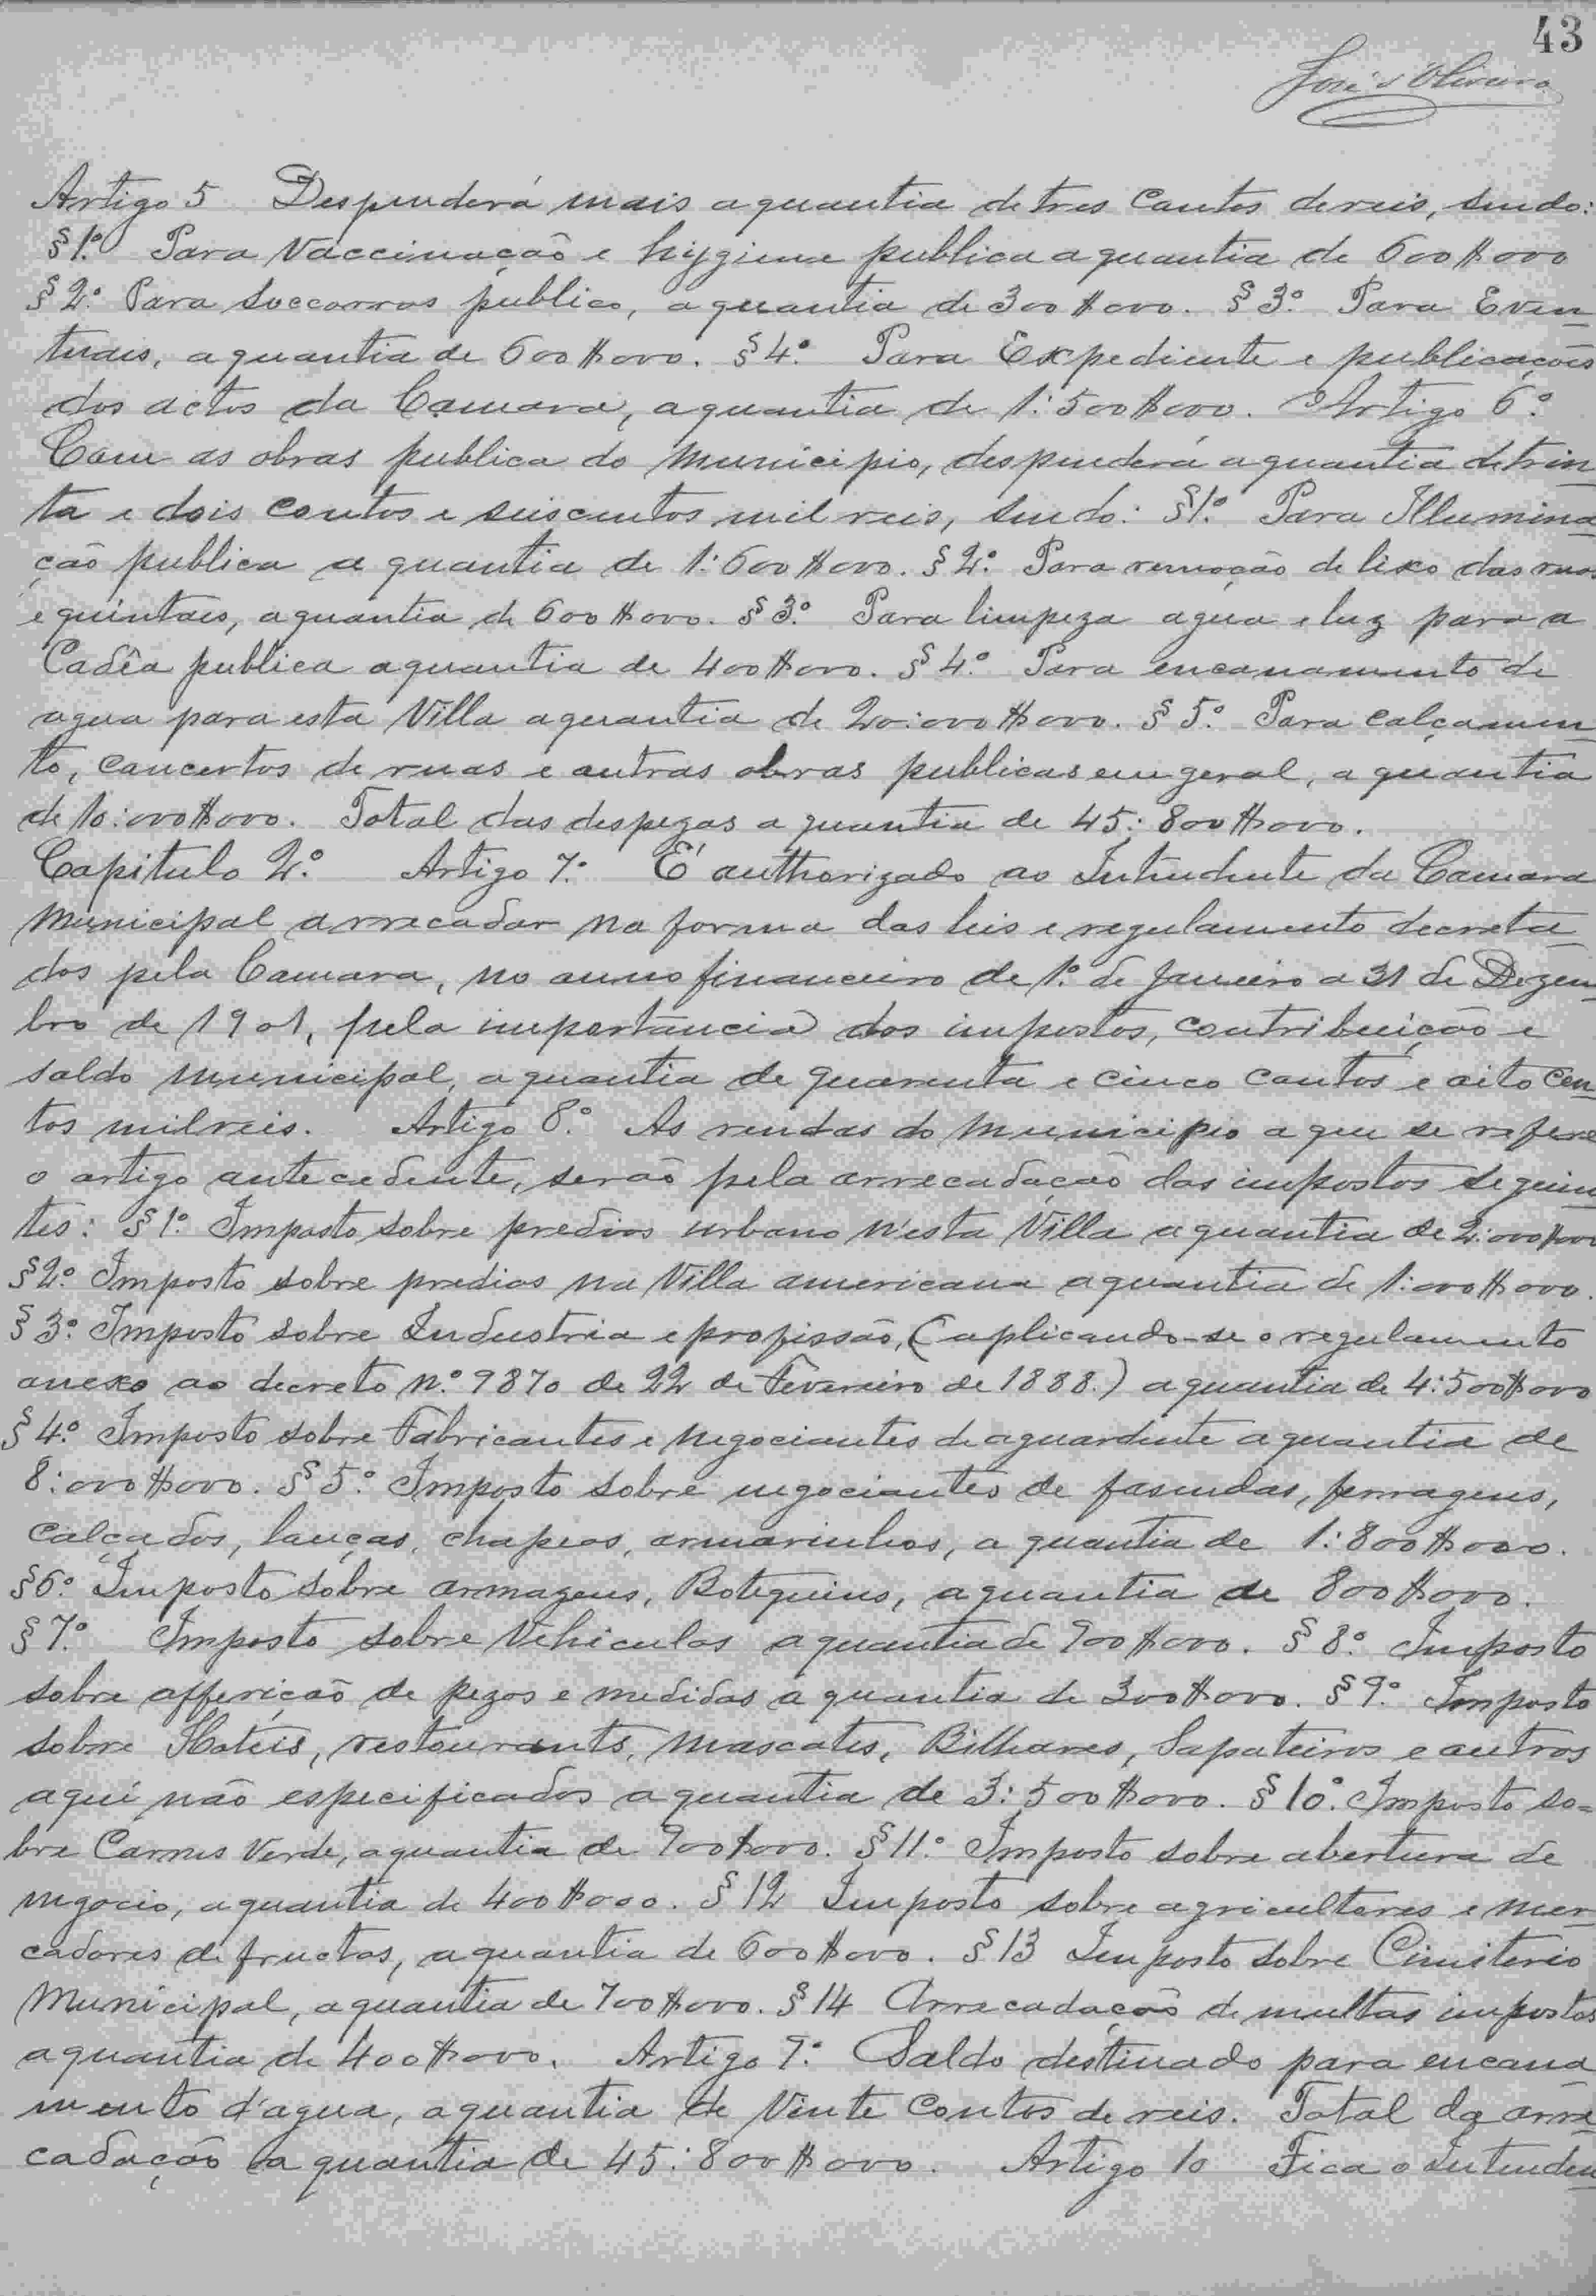 43
José d'Oliveira
Artigo 5 Despenderá mais a quantia de tres Contos de reis, sendo:
§ 1º Para Vaccinação e hygiene publica a quantia de 600$000
§ 2º Para Soccorros publico, a quantia de 300$000. § 3º Para Even
tuais, a quantia de 600$000. § 4º Para Expediente e publicações
dos actos da Camara, a quantia de 1:500$000. Artigo 6º
Com as obras publica do Municipio, despenderá a quantia de trin
ta e dois contos e seiscentos mil reis, sendo: § 1º Para Illumina
ção publica a quantia de 1:600$000. § 2º Para remoção de lixo das ruas
e quintaes, a quantia de 600$000. § 3º Para limpeza agua e luz para a
Cadêa publica a quantia de 400$000. § 4º Para encanamento de
agua para esta Villa a quantia de 20:000$000. § 5º Para calçamen
to, concertos de ruas e outras obras publicas em geral, a quantia
de 10:000$000. Total das despezas a quantia de 45:800$000.
Capitulo 2º Artigo 7º É authorizado ao Intendente da Camara
Municipal arrecadar na forma das leis e regulamento decreta
dos pela Camara, no anno financeiro de 1º de Janeiro a 31 de Dezem
bro de 1901, pela importancia dos impostos, contribuição e
saldo municipal, a quantia de quarenta e cinco contos e oito cen
tos mil reis. Artigo 8º As rendas do Municipio a que se refere
o artigo antecedente, serão pela arrecadação dos impostos seguin
tes: § 1º Imposto sobre predios urbano n'esta Villa a quantia de 2:000$000
§ 2º Imposto sobre predios na Villa americana a quantia de 1:000$000.
§ 3º Imposto sobre Industria e profissão, (aplicando-se o regulamento
anexo ao decreto nº 9870 de 22 de Fevereiro de 1888.) a quantia de 4:500$000
§ 4º Imposto sobre Fabricantes e Negociantes de aguardente a quantia de
8:000$000. § 5º Imposto sobre negociantes de fasendas, ferragens,
Calçados, lanças, chapeos, armarinhos, a quantia de 1:800$000.
§ 6º Imposto sobre armazens, Botequins, a quantia de 800$000.
§ 7º Imposto sobre Vehiculos a quantia de 900$000. § 8º Imposto
sobre afferição de pezos e medidas a quantia de 300$000. § 9º Imposto
sobre Hoteis, restourants, Mascates, Bilhares, Sapateiros e outros
aqui não especificados a quantia de 3:500$000. § 10º Imposto so=
bre Carnes Verde, a quantia de 900$000. § 11º Imposto sobre abertura de
negocio, a quantia de 400$000. § 12 Imposto sobre agricultores e mer
cadores de fructas, a quantia de 600$000. § 13 Imposto sobre Cimiterio
Municipal, a quantia de 700$000. § 14 Arrecadação de multas impostas
a quantia de 400$000. Artigo 9º Saldo destinado para encana
mento d'agua, a quantia de Vinte Contos de reis. Total da arre
cadação a quantia de 45:800$000. Artigo 10 Fica o Intenden